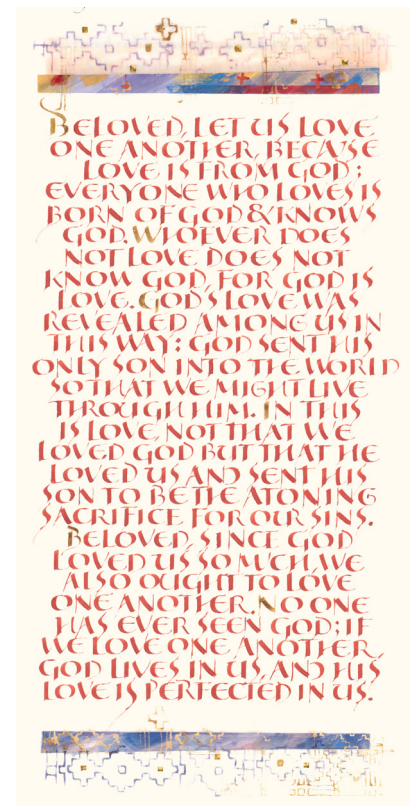 BELOVED, LET US LOVE
ONE ANOTHER, BECAUSE
LOVE IS FROM GOD;
EVERYONE WHO LOVES IS
BORN OF GOD & KNOWS
GOD. WHOEVER DOES
NOT LOVE DOES NOT
KNOW GOD, FOR GOD IS
LOVE. GOD'S LOVE WAS
REVEALED AMONG US IN
THIS WAY: GOD SENT HIS
ONLY SON INTO THE WORLD
SO THAT WE MIGHT LIVE
THROUGH HIM. IN THIS
IS LOVE, NOT THAT WE
LOVED GOD BUT THAT HE
LOVED US AND SENT HIS
SON TO BE THE ATONING
SACRIFICE FOR OUR SINS.
BELOVED, SINCE GOD
LOVED US SO MUCH, WE
ALSO OUGHT TO LOVE
ONE ANOTHER. NO ONE
HAS EVER SEEN GOD; IF
WE LOVE ONE ANOTHER,
GOD LIVES IN US, AND HIS
LOVE IS PERFECTED IN US.